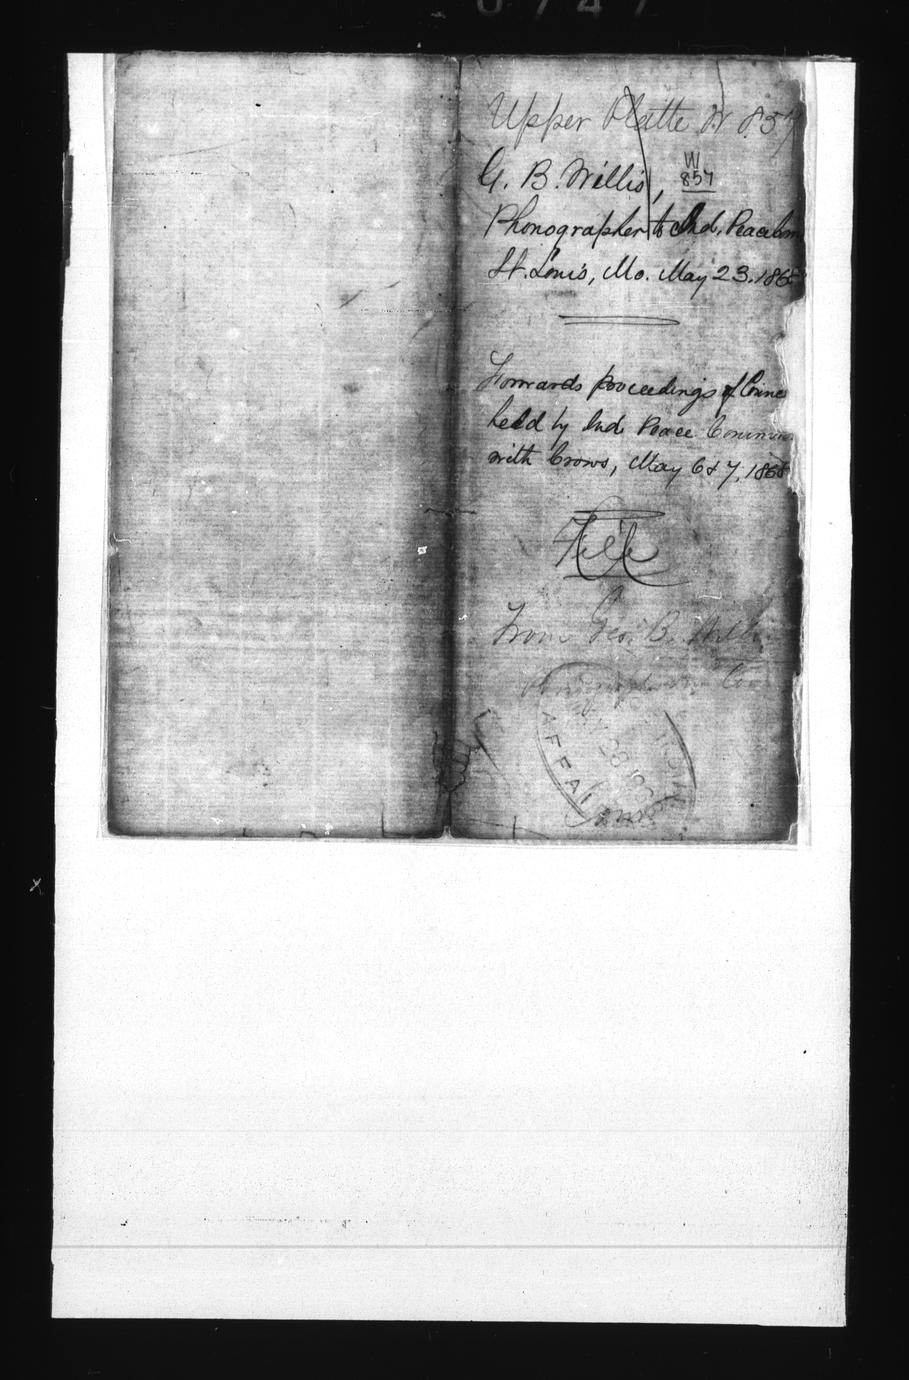 0747
Upper Platte W 857
G. B. Willis,
W
857
Phonographer to Ind. Peace Com
St. Louis, Mo. May 23. 1868
Forwards proceedings of Counc
held by Ind Peace Commis
with Crows, May 6 & 7, 1868
File
From Geo. B. Willis
AFFAI
28 18